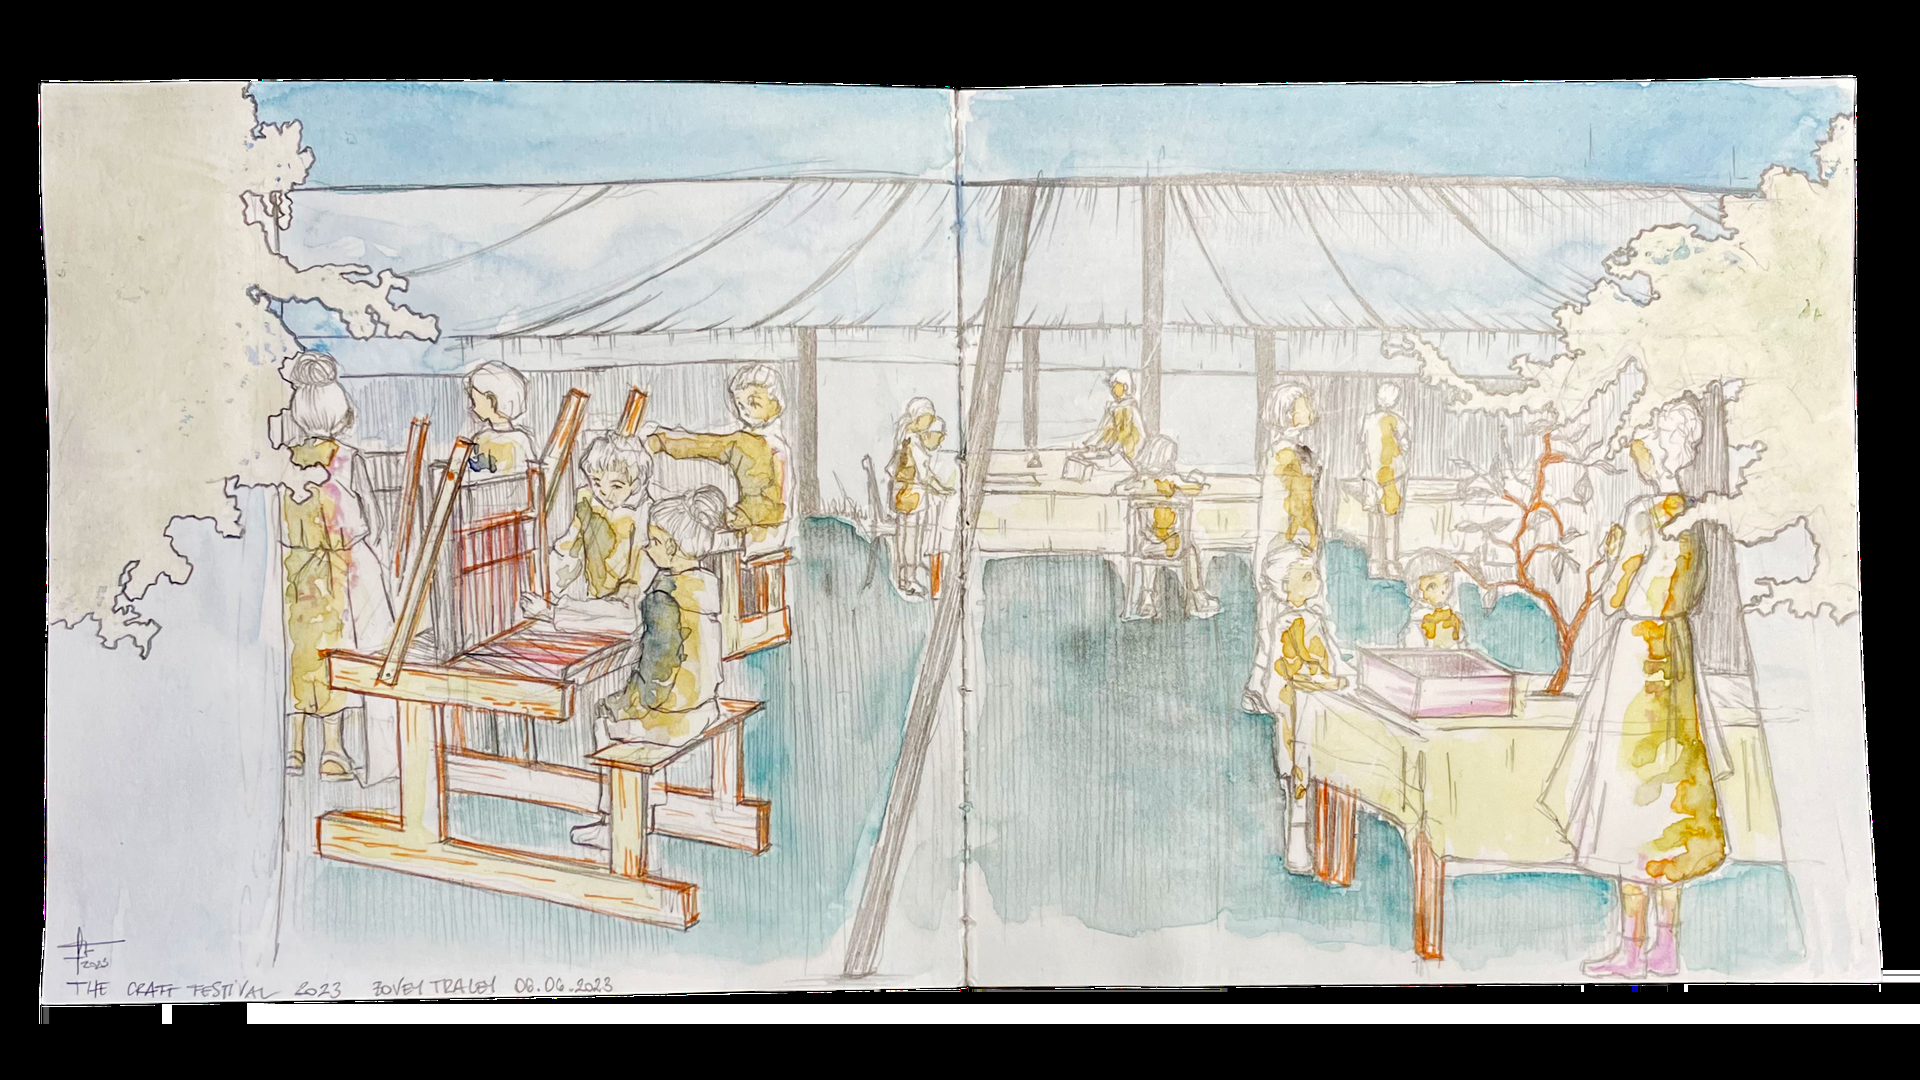 2023
THE CRAFT FESTIVAL 2023 BOVEY TRACEY 06.06.2023